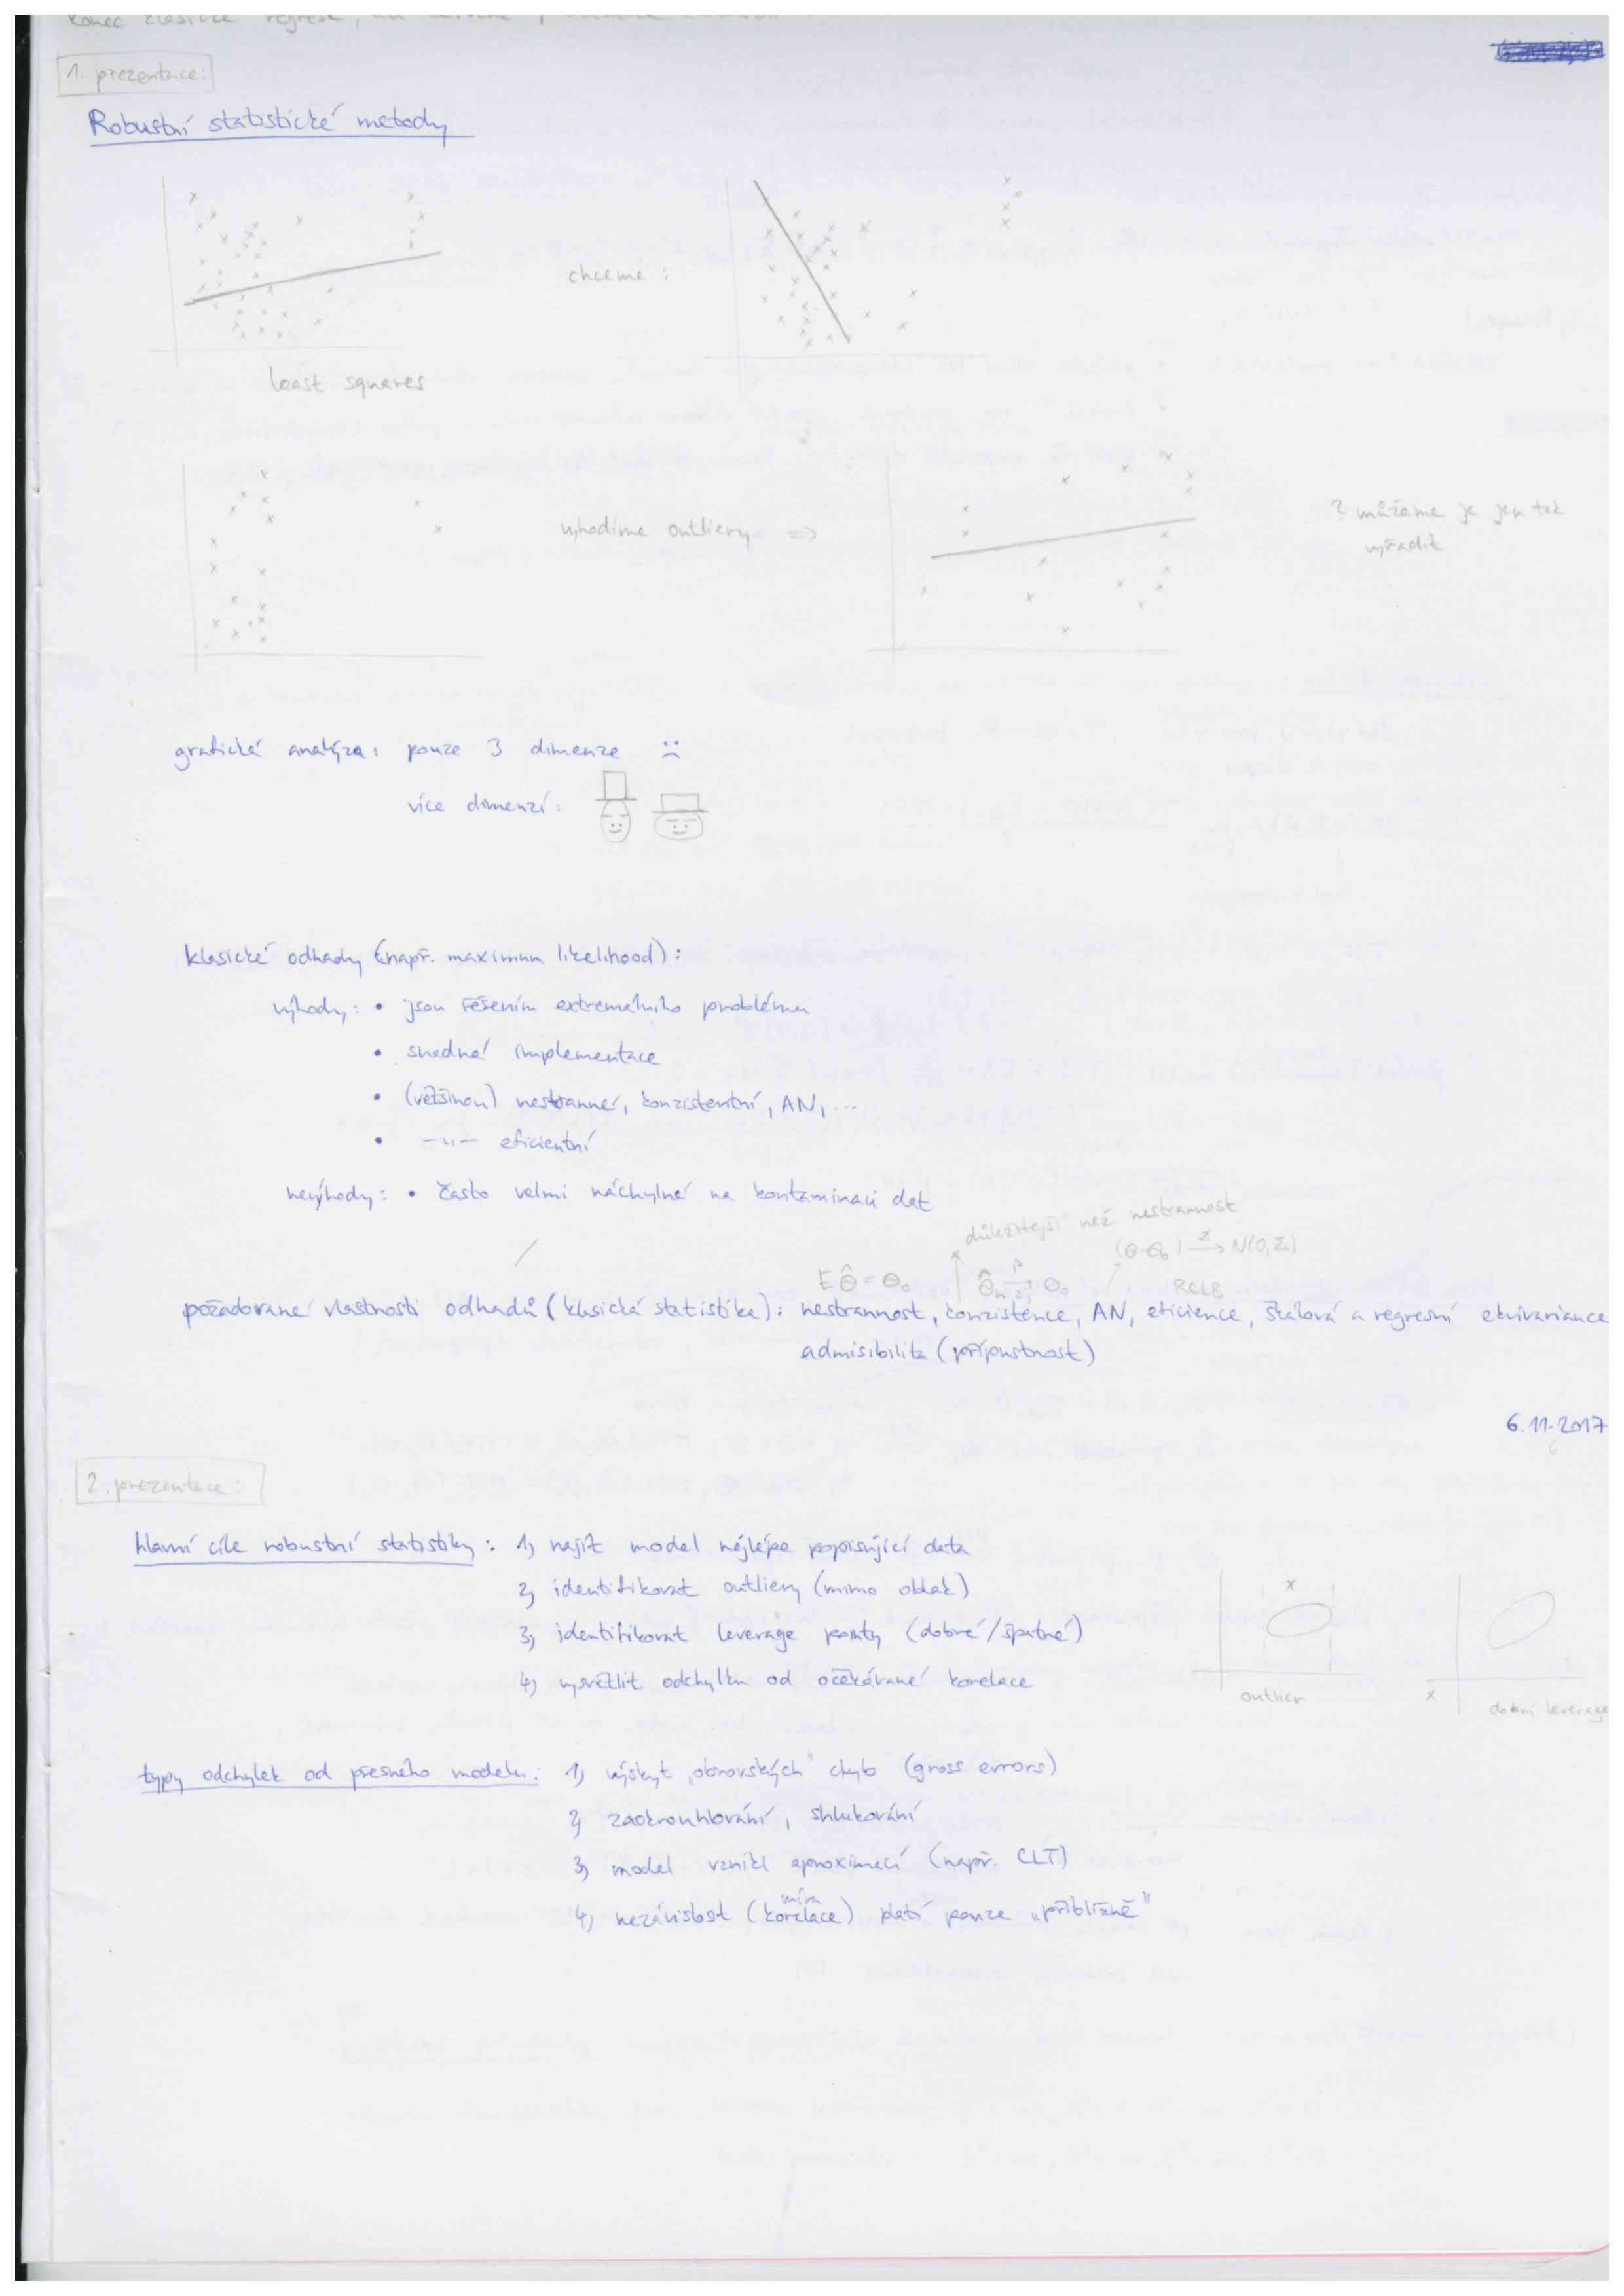 1. prezentace:
Robustní statistické metody
chceme :
least squares
vyhodíme outliery =>
? můžeme je jen tak
vyřadit
grafická analýza: pouze 3 dimenze :(
více dimenzí:
klasické odhady (např. maximum likelihood):
výhody: • jsou řešením extremálního problému
• snadná implementace
• (většinou) nestranné, konzistentní, AN, ...
• —„— eficientní
nevýhody: • často velmi náchylné na kontaminaci dat
důležitější než nestrannost
E θ̂ = θ₀
RCLB
požadované vlastnosti odhadů (klasická statistika): nestrannost, konzistence, AN, eficience, škálová a regresní ekvivariance
admisibilita (přípustnost)
6.11.2017
2. prezentace:
hlavní cíle robustní statistiky: 1) najít model nejlépe popisující data
2) identifikovat outliery (mimo oblak)
3) identifikovat leverage pointy (dobré/špatné)
4) vysvětlit odchylku od očekávané korelace
outlier
dobrý leverage
typy odchylek od přesného modelu: 1) výskyt „obrovských" chyb (gross errors)
2) zaokrouhlování, shlukování
3) model vznikl aproximací (např. CLT)
míra
4) nezávislost (korelace) platí pouze „přibližně"